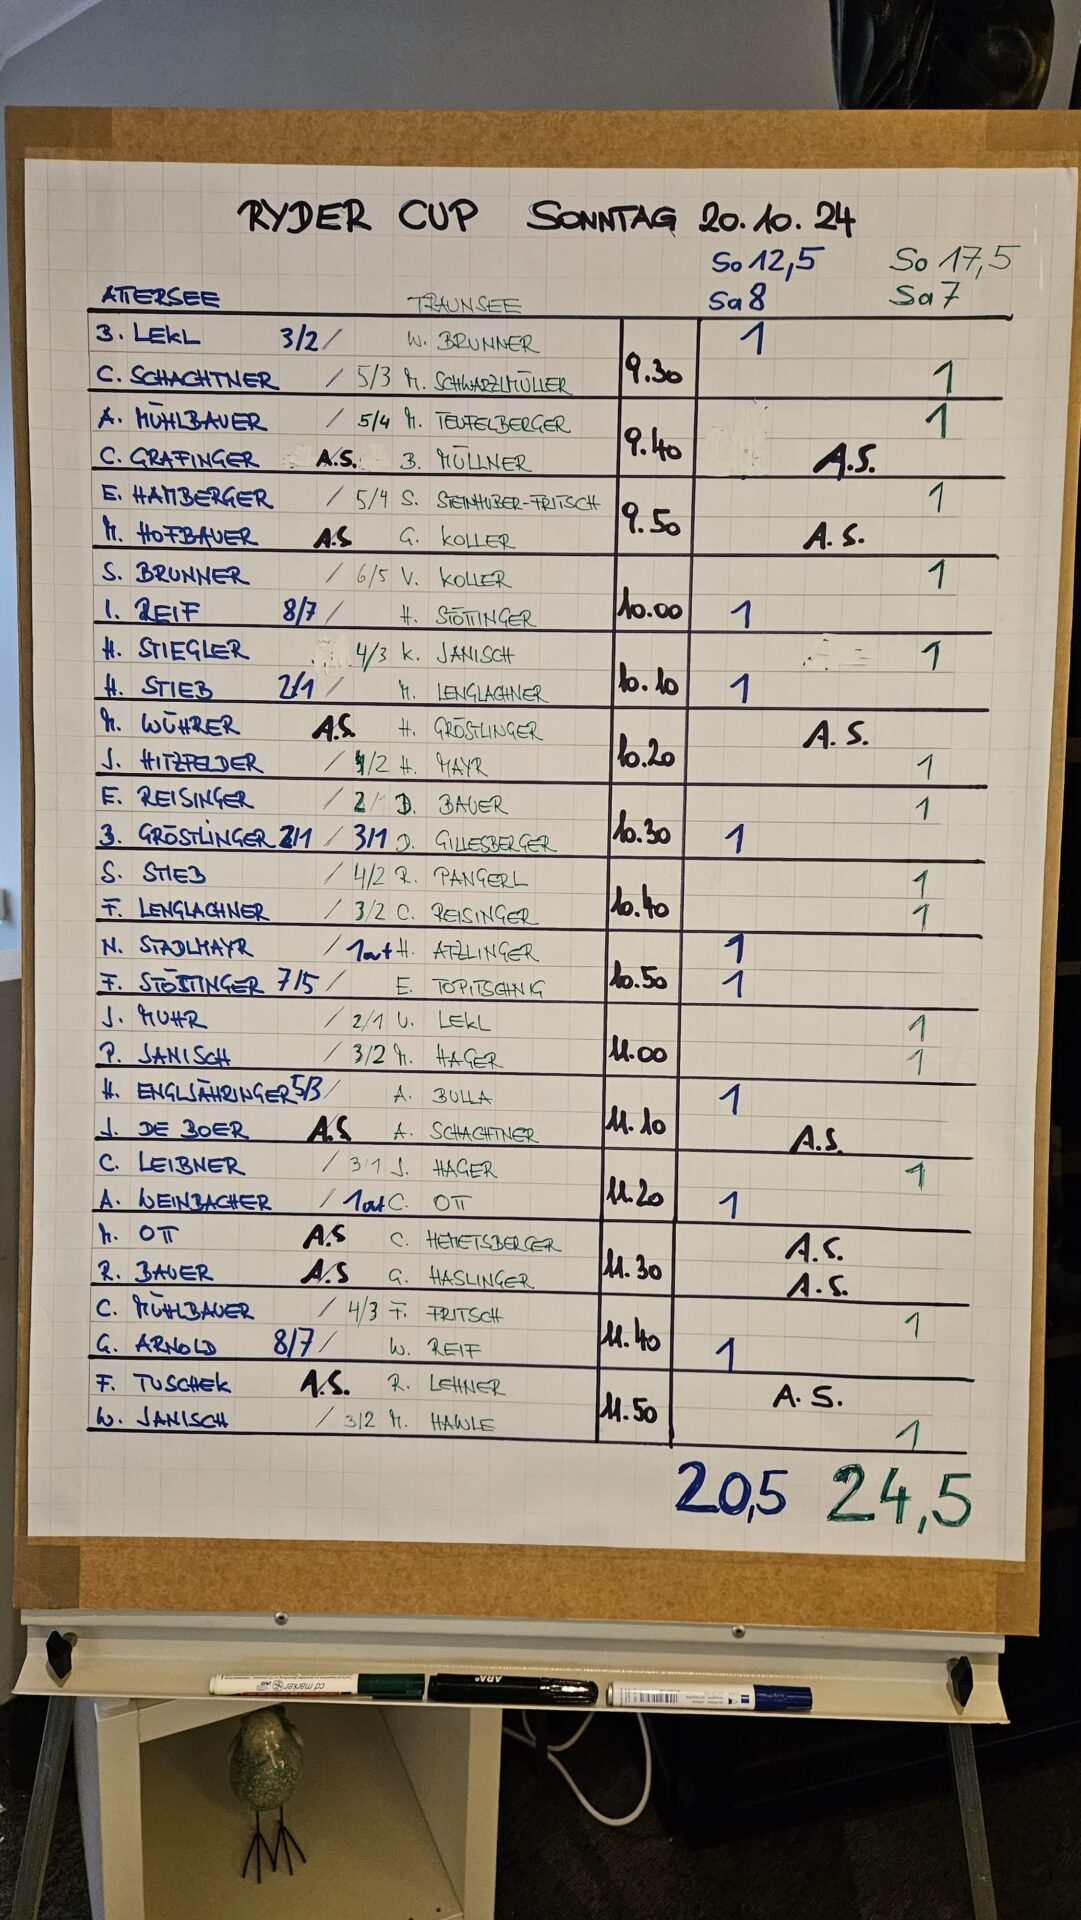 RYDER CUP SONNTAG 20.10.24
So 12,5 So 17,5
ATTERSEE TRAUNSEE Sa 8 Sa 7
B. LEKL 3/2 / W. BRUNNER 1
9.30
C. SCHACHTNER / 5/3 M. SCHWARZLMÜLLER 1
A. MÜHLBAUER / 5/4 M. TEUFELBERGER 1
9.40
C. GRAFINGER A.S. B. MÜLLNER A.S.
E. HAMBERGER / 5/4 S. STEINHUBER-FRITSCH 1
9.50
M. HOFBAUER A.S G. KOLLER A.S.
S. BRUNNER / 6/5 V. KOLLER 1
10.00
I. REIF 8/7 / H. STÖTTINGER 1
H. STIEGLER 4/3 K. JANISCH 1
10.10
H. STIEB 2/1 / M. LENGLACHNER 1
M. WÜHRER A.S. H. GRÖSTLINGER A.S.
10.20
J. HITZFELDER / /2 H. MAYR 1
E. REISINGER / 2/1 D. BAUER 1
10.30
B. GRÖSTLINGER /1 / 3/1 D. GILLESBERGER 1
S. STIEB / 4/2 R. PANGERL 1
10.40
F. LENGLACHNER / 3/2 C. REISINGER 1
N. STADLMAYR / 1auf H. ATZLINGER 1
10.50
F. STÖTTINGER 7/5 / E. TOPITSCHNIG 1
J. MUHR / 2/1 U. LEKL 1
11.00
P. JANISCH / 3/2 M. HAGER 1
H. ENGLJÄHRINGER 5/3 / A. BULLA 1
11.10
J. DE BOER A.S A. SCHACHTNER A.S.
C. LEIBNER / 3/1 J. HAGER 1
11.20
A. WEINBACHER / 1auf C. OTT 1
M. OTT A.S C. HEMETSBERGER A.S.
11.30
R. BAUER A.S G. HASLINGER A.S.
C. MÜHLBAUER / 4/3 F. FRITSCH 1
11.40
G. ARNOLD 8/7 / W. REIF 1
F. TUSCHEK A.S. R. LEHNER A.S.
11.50
W. JANISCH / 3/2 M. HAWLE 1
20,5 24,5
cd marker
ARA